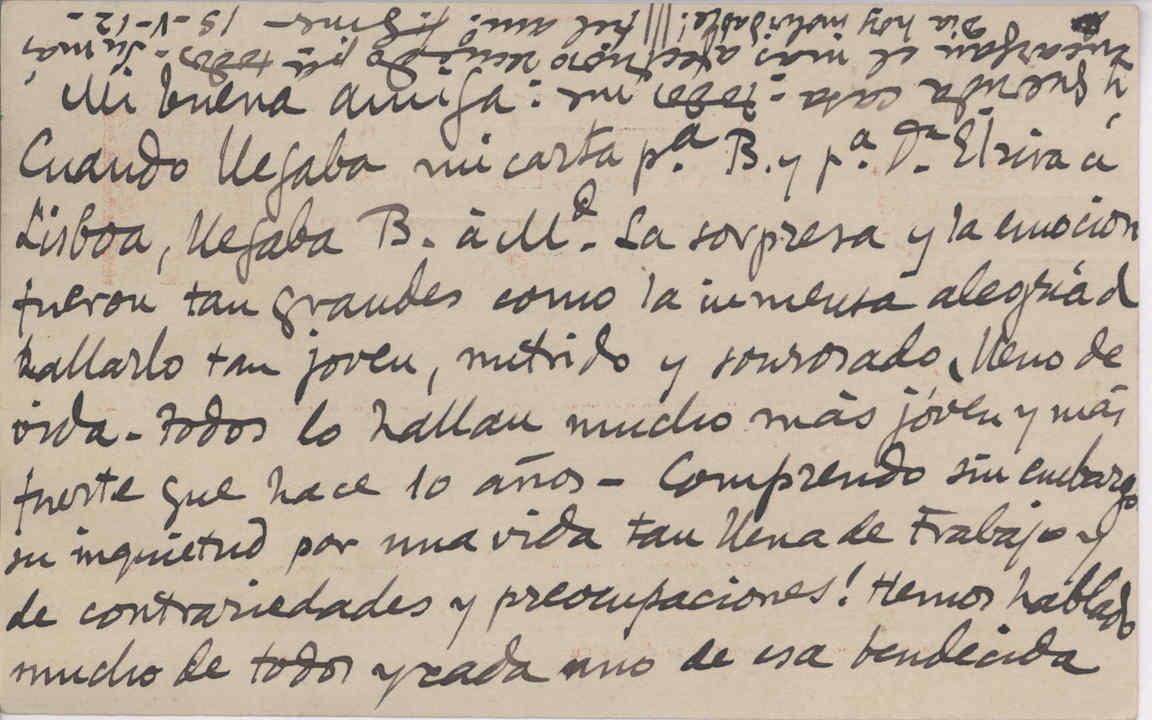 Mi buena amiga:
Cuando llegaba mi carta p.ª B. y p.ª D.ª Elsira á
Lisboa, llegaba B. á M.d. La sorpresa y la emoción
fueron tan grandes como la inmensa alegría d
hallarlo tan joven, nutrido y sonrosado, lleno de
vida. Todos lo hallan mucho más jóven y más
fuerte que hace 10 años - Comprendo sin embargo
su inquietud por una vida tan llena de Trabajo y
de contrariedades y preocupaciones! Hemos hablado
mucho de todos y cada uno de esa bendecida
y querida casa -
encargan el más afectuoso recuerdo p.ª todos - Su más
fiel am.º 15-V-12-
Dia hoy inolvidable!